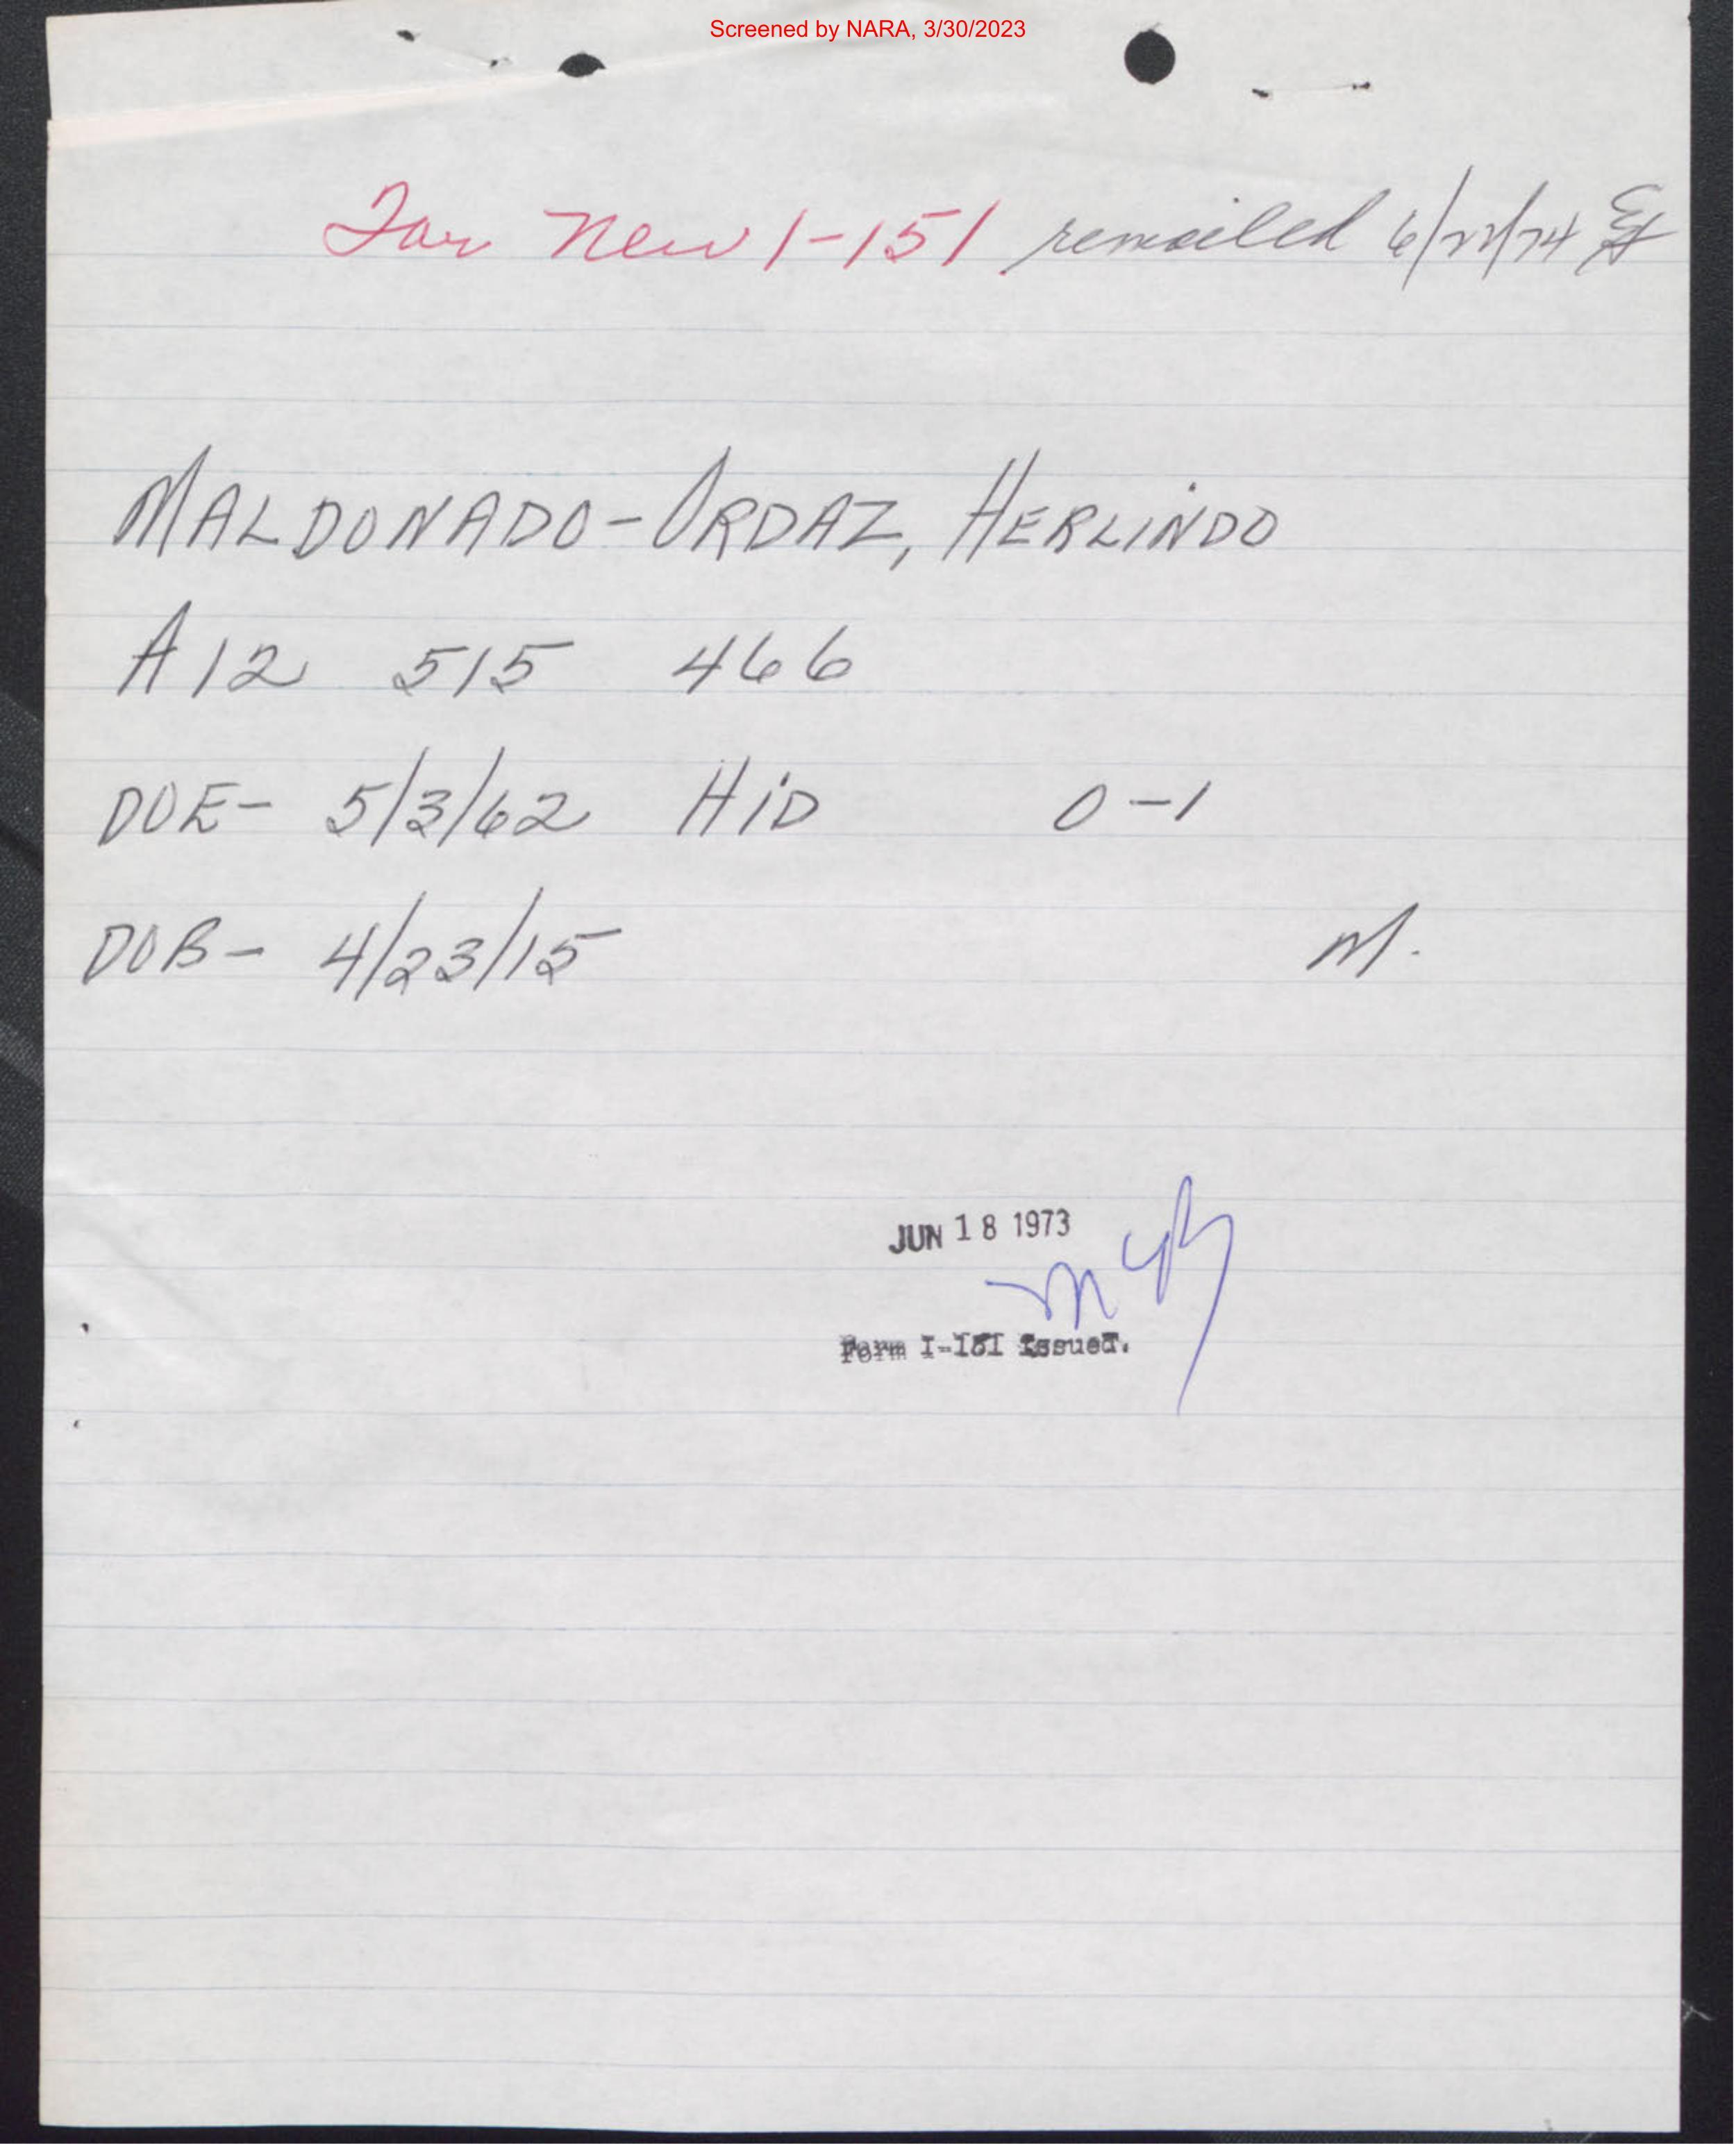 Screened by NARA, 3/30/2023
For New I-151 remailed 6/21/74
MALDONADO-ORDAZ, HERLINDO
A12 515 466
DOE- 5/3/62 HID 0-1
DOB- 4/23/15 M.
JUN 18 1973
Form I-151 Issued.